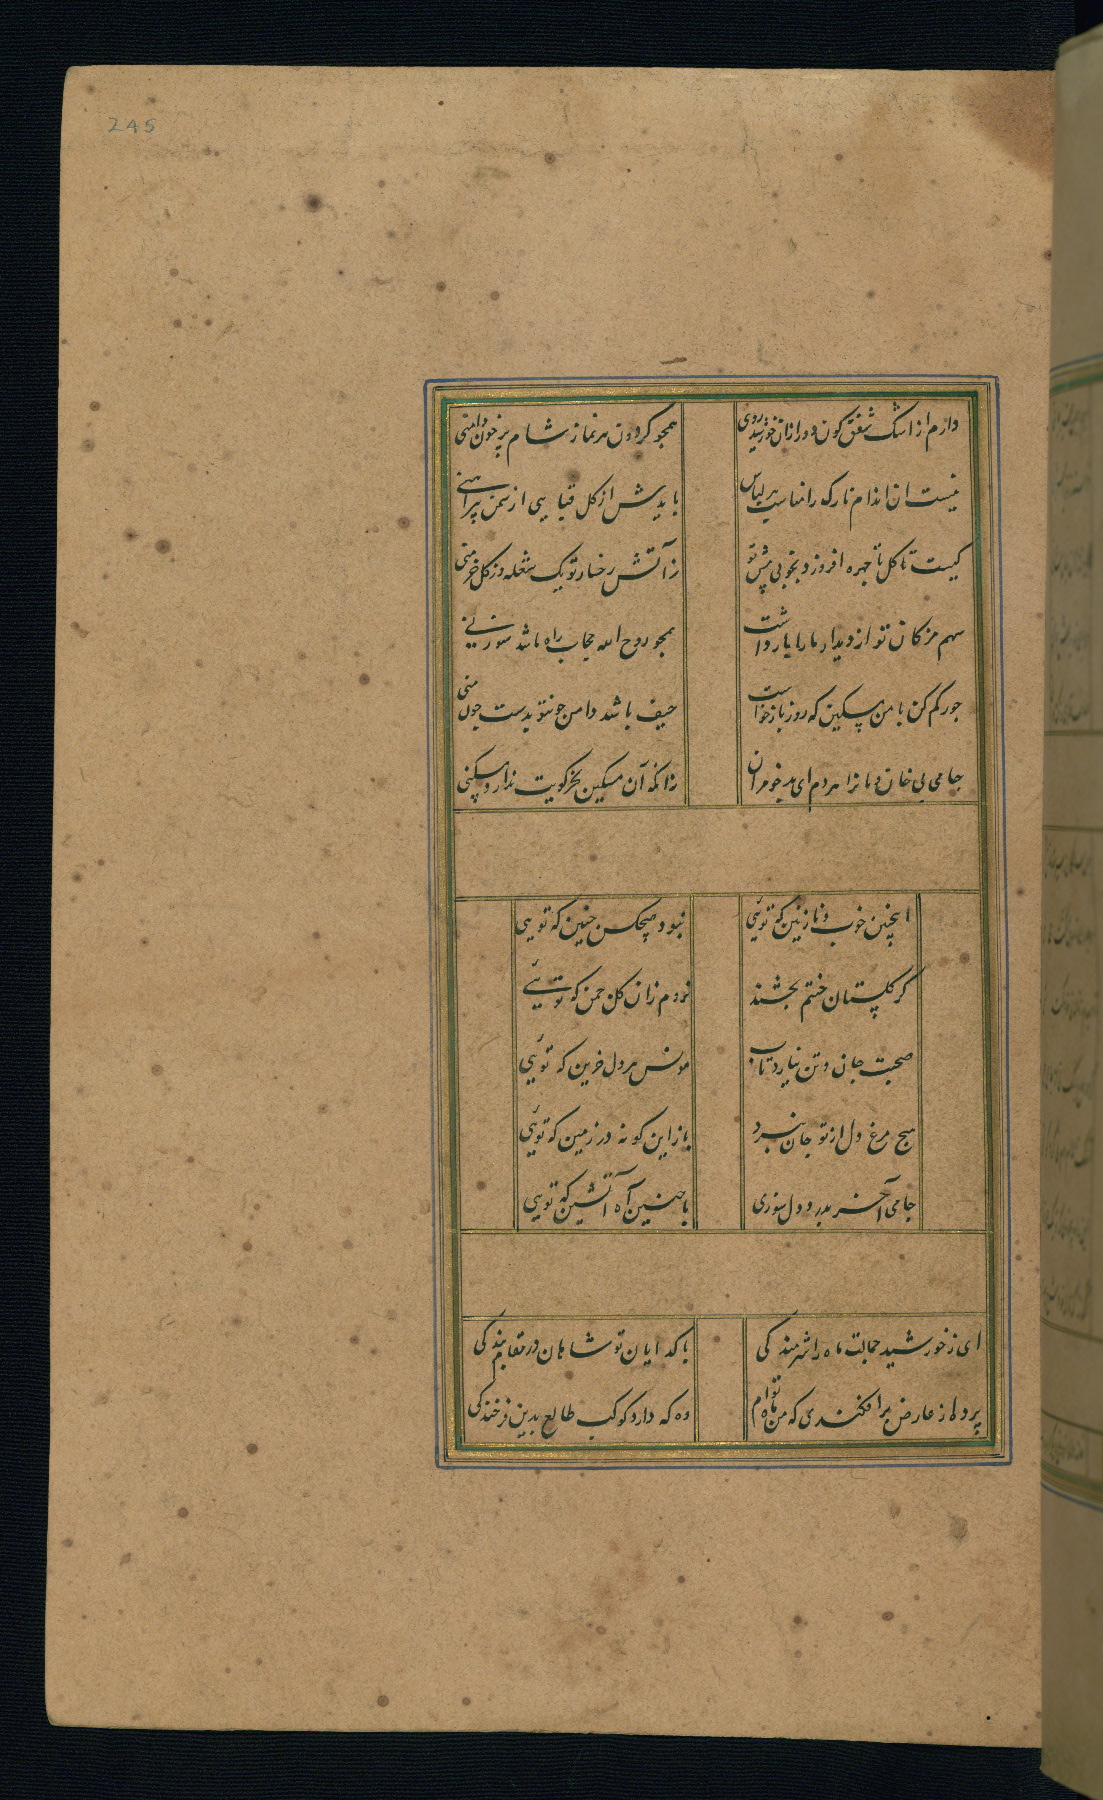 245
دارم از اشک شفق کون دور ازان خورشید روی
همچو کردون هر نماز شام پر خون دامنی
نیست ان اندام نازک را مناسب هر لباس
بایدش از کل قبایی از سمن پیراهنی
کیست تا کل تا چهره افروزد بخوبی پیش تو
ز آتش رخسار تو یک شعله وز کل خرمنی
سهم مژکان تو از دیدار ما را باز داشت
همچو روح الله حجاب راه ما شد سوزنی
جور کم کن با من مسکین که روز بازخواست
حیف باشد دامن چونتو بدست چون منی
جامی بی خان و مانرا هردم ای مه خو مران
زانکه آن مسکین بجز کویت ندارد مسکنی
اینچنین خوب و نازنین که تویی
نبود هیچکس چنین که تویی
کر کلستان ختم بخشند
نروم زان کل چمن که تویی
صحبت جان و تن نیارد تاب
مونس هر دل حزین که تویی
هیچ مرغ دل از تو جان نبرد
باز این کونه در زمین که تویی
جامی آخر بدرد دل سوزی
با چنین آه آتشین که تویی
ای ز خورشید جمالت ماه را شرمندکی
با کدایان تو شاهان در مقام بندکی
پرده از عارض برافکندی که من ماه توام
وه که دارد کوکب طالع بدین فرخندکی